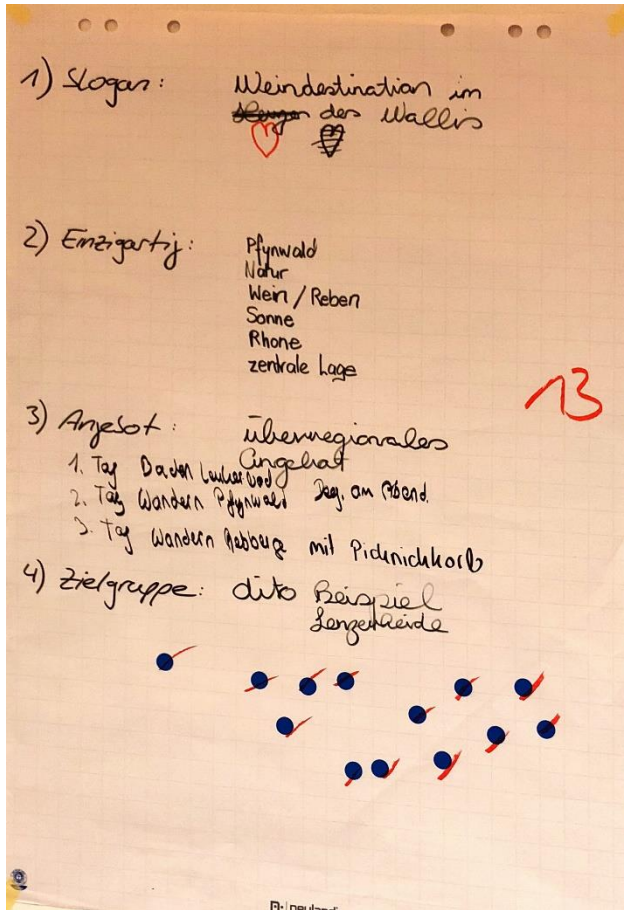 1) Slogan: Weindestination im
Herzen des Wallis
2) Einzigartig: Pfynwald
Natur
Wein / Reben
Sonne
Rhone
zentrale Lage
13
3) Angebot: überregionales
Angebot
1. Tag Baden Leukerbad
2. Tag Wandern Pfynwald Deg. am Abend.
3. Tag Wandern Rebberge mit Picknickkorb
4) Zielgruppe: dito Beispiel
Lenzerheide
neuland